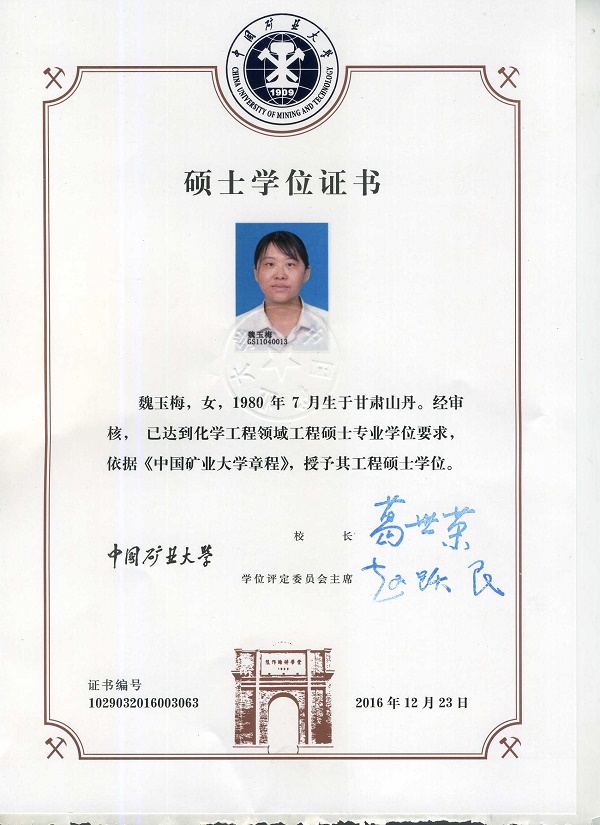 中国矿业大学
CHINA UNIVERSITY OF MINING AND TECHNOLOGY
1909
硕士学位证书
魏玉梅
GS11040013
魏玉梅，女，1980 年 7 月生于甘肃山丹。经审
核， 已达到化学工程领域工程硕士专业学位要求，
依据《中国矿业大学章程》，授予其工程硕士学位。
校 长 葛世荣
中国矿业大学
学位评定委员会主席 赵跃民
证书编号
1029032016003063
2016 年 12 月 23 日